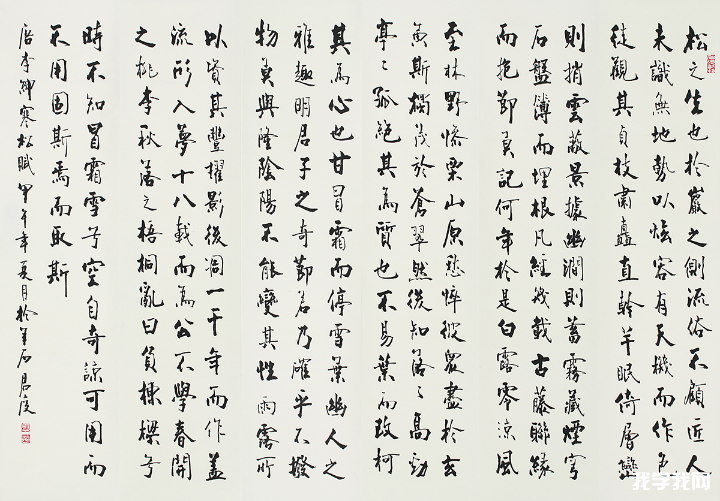 松之生也於巖之側流俗不顧匠人
未識無地勢以炫容有天機而作色
徒觀其貞枝肅矗直幹芊眠倚層巒
則捎雲蔽景據幽澗則蓄霧藏煙穹
石盤薄而埋根凡經幾載古藤聯緣
而抱節莫記何年於是白露零涼風
至林野慘栗山原愁悴彼眾盡於玄
黃斯獨茂於蒼翠然後知落々高勁
亭々孤絕其為質也不易葉而改柯
其為心也甘冒霜而停雪葉幽人之
雅趣明君子之奇節若乃確乎不撥
物莫與隆陰陽不能變其性雨露所
以資其豐擢影後凋一千年而作蓋
流形入夢十八載而為公不學春開
之桃李秋落之梧桐亂曰負棟樑兮
時不知冒霜雪兮空自奇諒可用而
不用固斯焉而取斯
唐李紳寒松賦甲午年夏月於金石君度